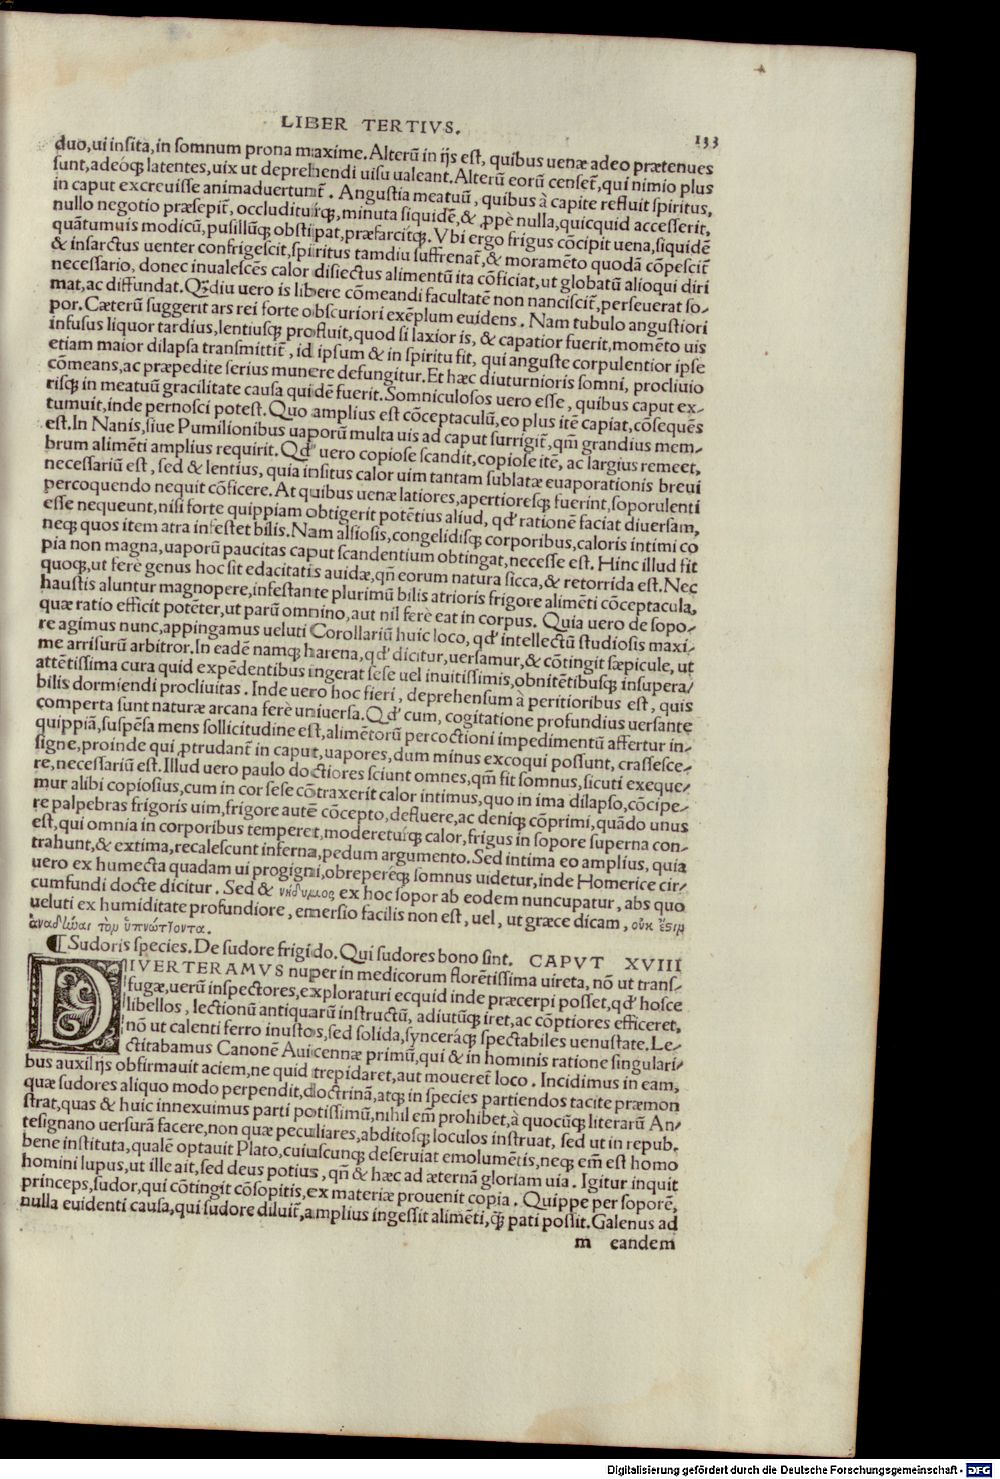 LIBER TERTIVS. 133
duo, ui insita, in somnum prona maxime. Alterũ in ijs est, quibus uenæ adeo prætenues
sunt, adeoq; latentes, uix ut deprehendi uisu ualeant. Alterũ eorũ censet̃, qui nimio plus
in caput excreuisse animaduertunt̃. Angustia meatuũ, quibus à capite refluit spiritus,
nullo negotio præsepit̃, occluditurq;, minuta siquidẽ, & ꝓpè nulla, quicquid accesserit,
quãtumuis modicũ, pusillũq; obstipat, præfarcitq;. Vbi ergo frigus cõcipit uena, siquidẽ
& insarctus uenter confrigescit, spiritus tamdiu suffrenat̃, & moramẽto quodã cõpescit̃
necessario, donec inualescẽs calor disiectus alimentũ ita cõficiat, ut globatũ alioqui diri
mat, ac diffundat. Q̃diu uero is libere cõmeandi facultatẽ non nanciscit̃, perseuerat so-
por. Cæterũ suggerit ars rei forte obscuriori exẽplum euidens. Nam tubulo angustiori
infusus liquor tardius, lentiusq; profluit, quod si laxior is, & capatior fuerit, momẽto uis
etiam maior dilapsa transmittit̃, id ipsum & in spiritu fit, qui anguste corpulentior ipse
cõmeans, ac præpedite serius munere defungitur. Et hæc diuturnioris somni, procliuio
risq; in meatuũ gracilitate causa quidẽ fuerit. Somniculosos uero esse, quibus caput ex-
tumuit, inde pernosci potest. Quo amplius est cõceptaculũ, eo plus itẽ capiat, cõsequẽs
est. In Nanis, siue Pumilionibus uaporũ multa uis ad caput surrigit̃, qm̃ grandius mem-
brum alimẽti amplius requirit. Qđ uero copiose scandit, copiose itẽ, ac largius remeet,
necessariũ est, sed & lentius, quia insitus calor uim tantam sublatæ euaporationis breui
percoquendo nequit cõficere. At quibus uenæ latiores, apertioresq; fuerint, soporulenti
esse nequeunt, nisi forte quippiam obtigerit potẽtius aliud, qđ rationẽ faciat diuersam,
neq; quos item atra infestet bilis. Nam alsiosis, congelidisq; corporibus, caloris intimi co
pia non magna, uaporũ paucitas caput scandentium obtingat, necesse est. Hinc illud fit
quoq;, ut ferè genus hoc sit edacitatis auidæ, qñ eorum natura sicca, & retorrida est. Nec
haustis aluntur magnopere, infestante plurimũ bilis atrioris frigore alimẽti cõceptacula,
quæ ratio efficit potẽter, ut parũ omnino, aut nil ferè eat in corpus. Quia uero de sopo-
re agimus nunc, appingamus ueluti Corollariũ huic loco, qđ intellectũ studiosis maxi-
me arrisurũ arbitror. In eadẽ namq; harena, qđ dicitur, uersamur, & cõtingit sæpicule, ut
attẽtissima cura quid expẽdentibus ingerat sese uel inuitissimis, obnitẽtibusq; insupera-
bilis dormiendi procliuitas. Inde uero hoc fieri, deprehensum à peritioribus est, quis
comperta sunt naturæ arcana ferè uniuersa. Qđ cum, cogitatione profundius uersante
quippiã, suspẽsa mens sollicitudine est, alimẽtorũ percoctioni impedimentũ affertur in-
signe, proinde qui ꝓtrudant̃ in caput, uapores, dum minus excoqui possunt, crassesce-
re, necessariũ est. Illud uero paulo doctiores sciunt omnes, qm̃ fit somnus, sicuti exeque-
mur alibi copiosius, cum in cor sese cõtraxerit calor intimus, quo in ima dilapso, cõcipe-
re palpebras frigoris uim, frigore autẽ cõcepto, defluere, ac deniq; cõprimi, quãdo unus
est, qui omnia in corporibus temperet, modereturq; calor, frigus in sopore superna con-
trahunt, & extima, recalescunt inferna, pedum argumento. Sed intima eo amplius, quia
uero ex humecta quadam ui progigni, obrepereq; somnus uidetur, inde Homerice cir-
cumfundi docte dicitur. Sed & νήδυμος ex hoc sopor ab eodem nuncupatur, abs quo
ueluti ex humiditate profundiore, emersio facilis non est, uel, ut græce dicam, οὐκ ἔστιμ
ἀναδῦναι τὸμ ὑπνώττοντα.
¶Sudoris species. De sudore frigido. Qui sudores bono sint. CAPVT XVIII
DIVERTERAMVS nuper in medicorum florẽtissima uireta, nõ ut trans-
fugæ, uerũ inspectores, exploraturi ecquid inde præcerpi posset, qđ hosce
libellos, lectionũ antiquarũ instructũ, adiutũq; iret, ac cõptiores efficeret,
nõ ut calenti ferro inustos, sed solida, synceráq; spectabiles uenustate. Le-
ctitabamus Canonẽ Auicennæ primũ, qui & in hominis ratione singulari-
bus auxilijs obfirmauit aciem, ne quid trepidaret, aut moueret̃ loco. Incidimus in eam,
quæ sudores aliquo modo perpendit, doctrinã, atq; in species partiendos tacite præmon
strat, quas & huic innexuimus parti potissimũ, nihil em̃ prohibet, à quocũq; literarũ An-
tesignano uersurã facere, non quæ peculiares, abditosq; loculos instruat, sed ut in repub.
bene instituta, qualẽ optauit Plato, cuiuscunq; deseruiat emolumẽtis, neq; em̃ est homo
homini lupus, ut ille ait, sed deus potius, qñ & hæc ad æternã gloriam uia. Igitur inquit
princeps, sudor, qui cõtingit cõsopitis, ex materiæ prouenit copia. Quippe per soporẽ,
nulla euidenti causa, qui sudore diluit̃, amplius ingessit alimẽti, q̃ pati possit. Galenus ad
m eandem
Digitalisierung gefördert durch die Deutsche Forschungsgemeinschaft - DFG